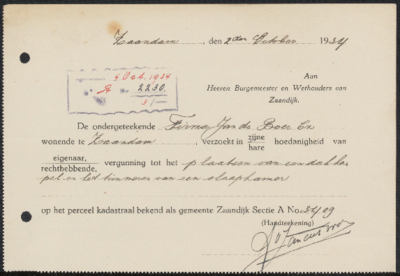 Zaandam, den 2den October 1934
Aan
Heeren Burgemeester en Wethouders van
Zaandijk.
5 Oct. 1934
A 2230
3/-
De ondergeteekende Firma Jan de Boer Cz
wonende te Zaandam, verzoekt in zijne hoedanigheid van
hare
eigenaar,
rechthebbende, vergunning tot het plaatsen van een dakka
pel en het timmeren van een slaapkamer
op het perceel kadastraal bekend als gemeente Zaandijk Sectie A No. 2409
(Handteekening)